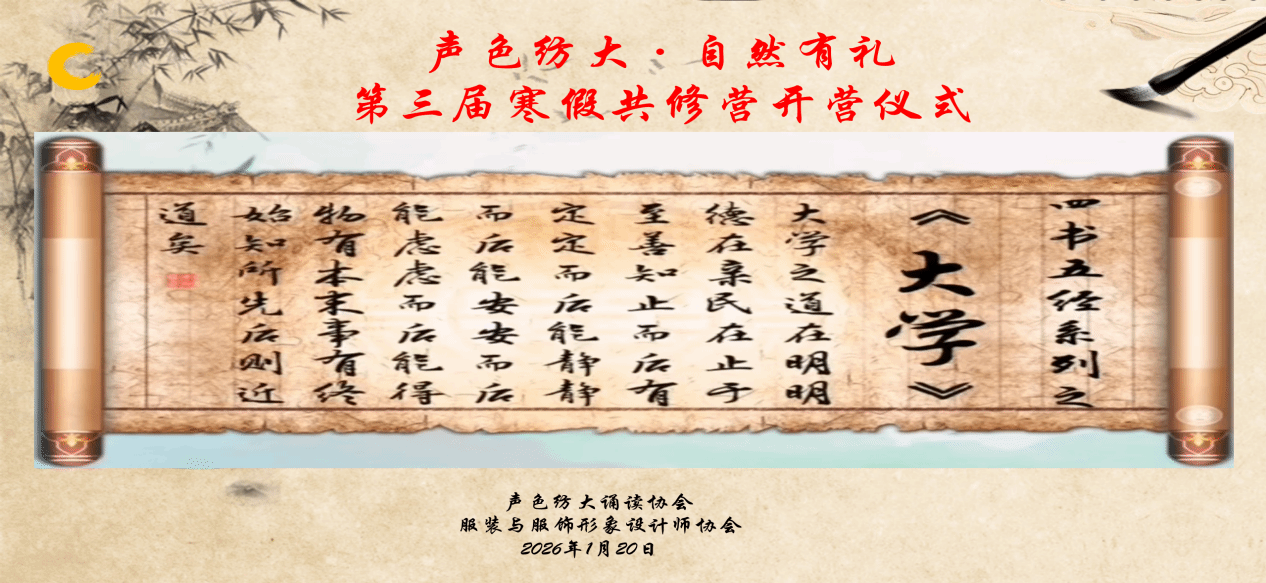 声色纺大·自然有礼
第三届寒假共修营开营仪式
四书五经系列之
《大学》
大学之道在明明
德在亲民在止于
至善知止而后有
定定而后能静静
而后能安安而后
能虑虑而后能得
物有本末事有终
始知所先后则近
道矣
声色纺大诵读协会
服装与服饰形象设计师协会
2026年1月20日